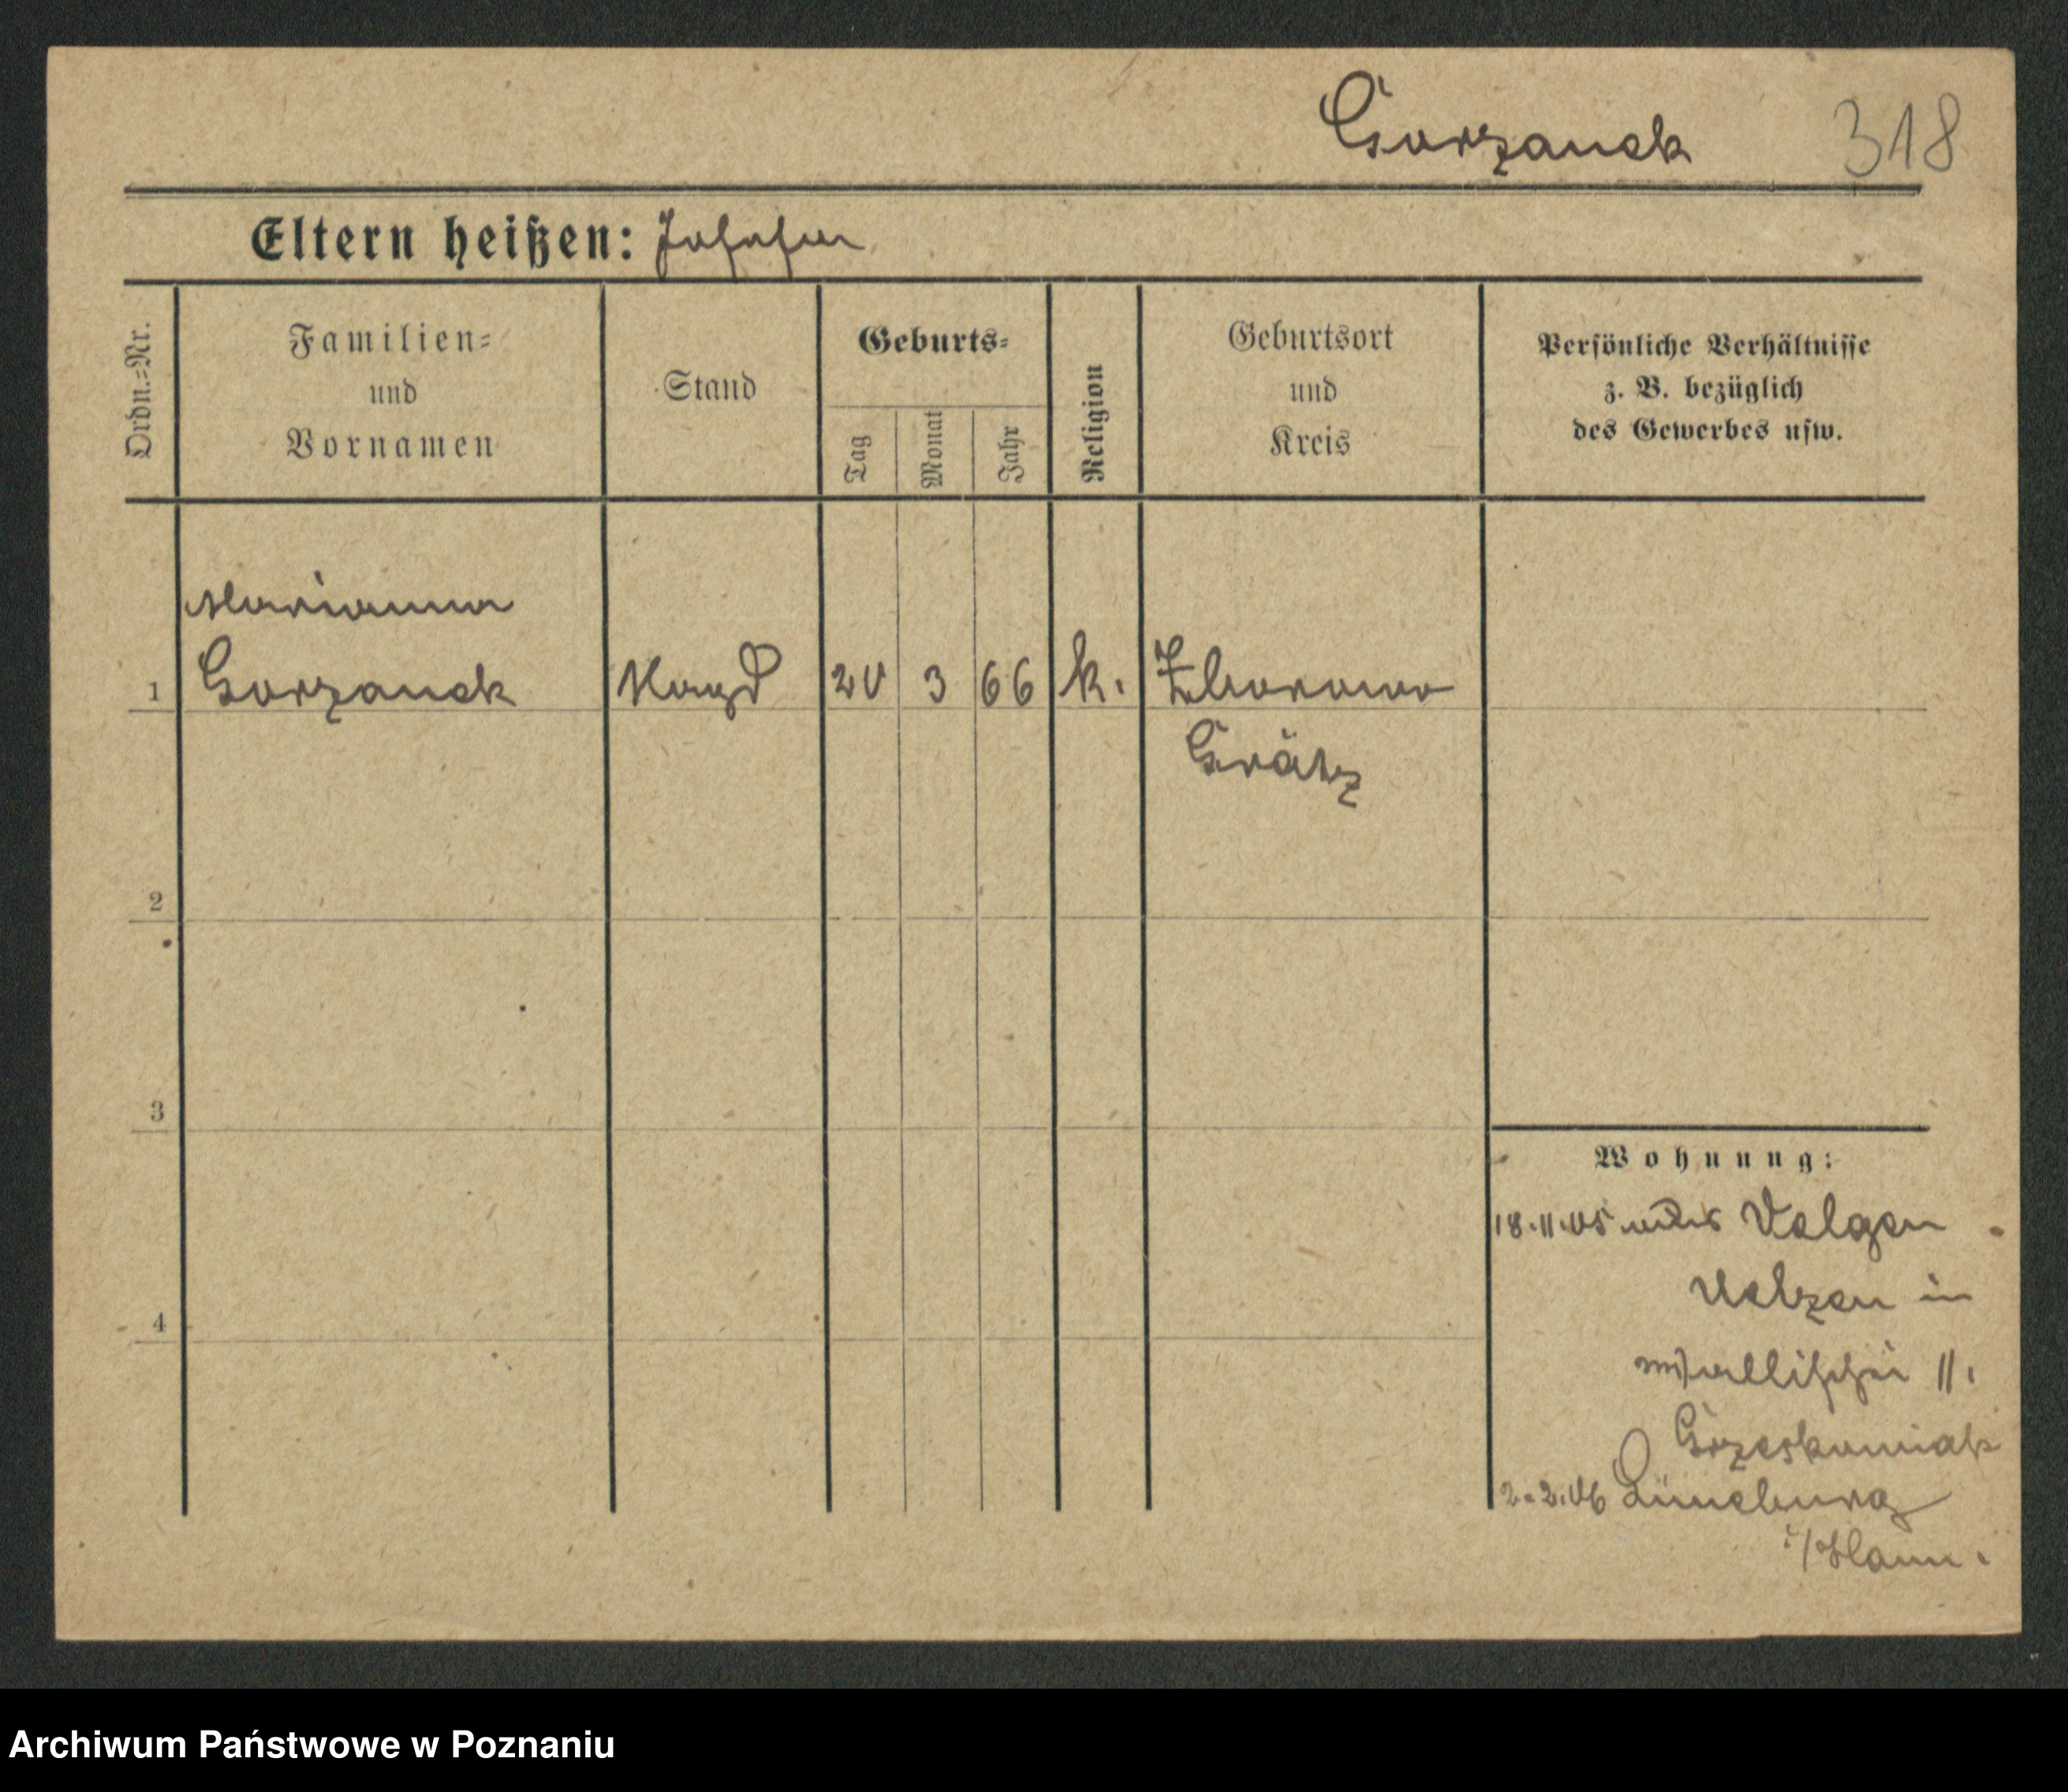 Gorzanek 318
Eltern heißen:
Ordn.=Nr. Familien= und Vornamen Stand Geburts= Tag Monat Jahr Religion Geburtsort und Kreis Persönliche Verhältnisse z. B. bezüglich des Gewerbes usw.
Marianna
1 Gorzanek Magd 20 3 66 k. Zborowo
Grätz
2
3
Wohnung:
18.11.05 Velgen
Uelzen in
4
11.
Grzeskowiak
2.2.06 Lüneburg
i/Hann.
Archiwum Państwowe w Poznaniu